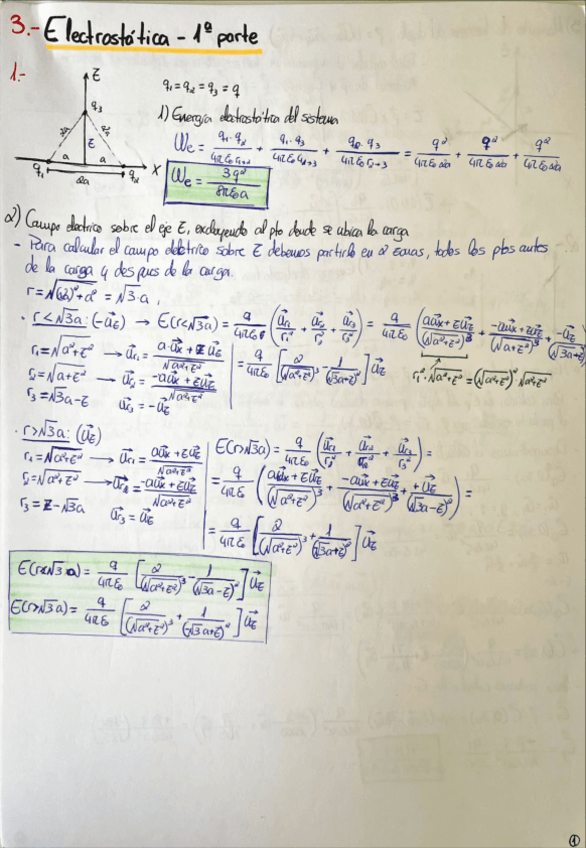 3.- Electrostática - 1ª parte
1.-
z
q₃
2a 2a
z
q₁ a a q₂ X
2a
q₁ = q₂ = q₃ = q
1) Energía electrostática del sistema
We = q₁·q₂/4πε₀r₁₂ + q₁·q₃/4πε₀r₁₃ + q₂·q₃/4πε₀r₂₃ = q²/4πε₀2a + q²/4πε₀2a + q²/4πε₀2a
We = 3q²/8πε₀a
2) Campo eléctrico sobre el eje z, excluyendo al pto donde se ubica la carga
- Para calcular el campo eléctrico sobre z debemos partirlo en 2 zonas, todos los ptos antes
de la carga y despues de la carga.
r = √(2a)²+a² = √3·a
· r < √3a: (-u⃗z) → E(r<√3a) = q/4πε₀ (u⃗r₁/r₁² + u⃗r₂/r₂² + u⃗r₃/r₃²) = q/4πε₀ (au⃗x + zu⃗z/(√a²+z²)³ + -au⃗x + zu⃗z/(√a²+z²)³ + -u⃗z/(√3a-z)²
r₁ = √a²+z² → u⃗r₁ = a·u⃗x + zu⃗z/√a²+z²
= q/4πε₀ [2/(√a²+z²)³ - 1/(√3a-z)²] u⃗z
r₁²·√a²+z² = (√a²+z²)²·√a²+z²
r₂ = √a²+z² → u⃗r₂ = -au⃗x + zu⃗z/√a²+z²
r₃ = √3a-z u⃗r₃ = -u⃗z
· r > √3a: (u⃗z)
r₁ = √a²+z² → u⃗r₁ = au⃗x + zu⃗z/√a²+z²
E(r>√3a) = q/4πε₀ (u⃗r₁/r₁² + u⃗r₂/r₂² + u⃗r₃/r₃²) =
r₂ = √a²+z² → u⃗r₂ = -au⃗x + zu⃗z/√a²+z²
= q/4πε (au⃗x + zu⃗z/(√a²+z²)³ + -au⃗x + zu⃗z/(√a²+z²)³ + +u⃗z/(√3a-z)²) =
r₃ = z - √3a u⃗r₃ = u⃗z
= q/4πε₀ [2/(√a²+z²)³ + 1/(√3a+z)²] u⃗z
E(r<√3a) = q/4πε₀ [2/(√a²+z²)³ - 1/(√3a-z)²] u⃗z
E(r>√3a) = q/4πε₀ [2/(√a²+z²)³ + 1/(√3a+z)²] u⃗z
1